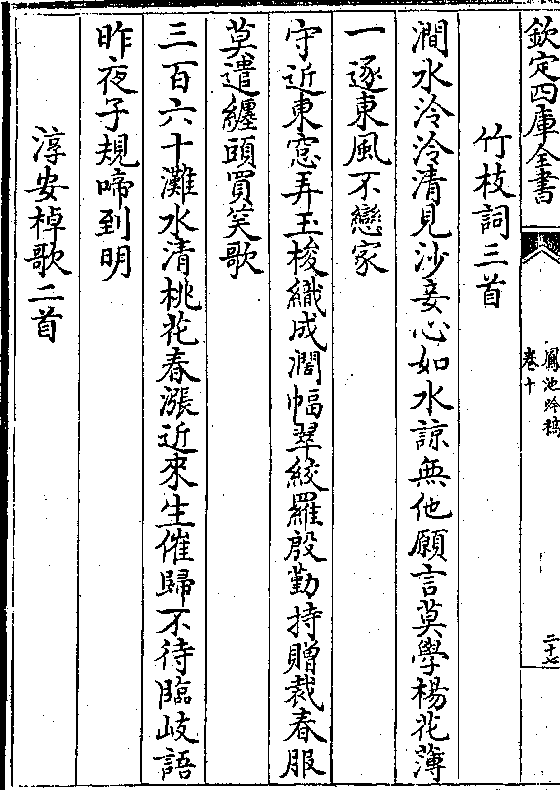 欽定四庫全書
鳳池吟稿
卷十
二十七
竹枝詞三首
澗水泠泠清見沙妾心如水諒無他願言莫學楊花薄
一逐東風不戀家
守近東窓弄玉梭織成濶幅翠綾羅殷勤持贈裁春服
莫遣纏頭買笑歌
三百六十灘水清桃花春漲近來生催歸不待臨岐語
昨夜子規啼到明
淳安棹歌二首